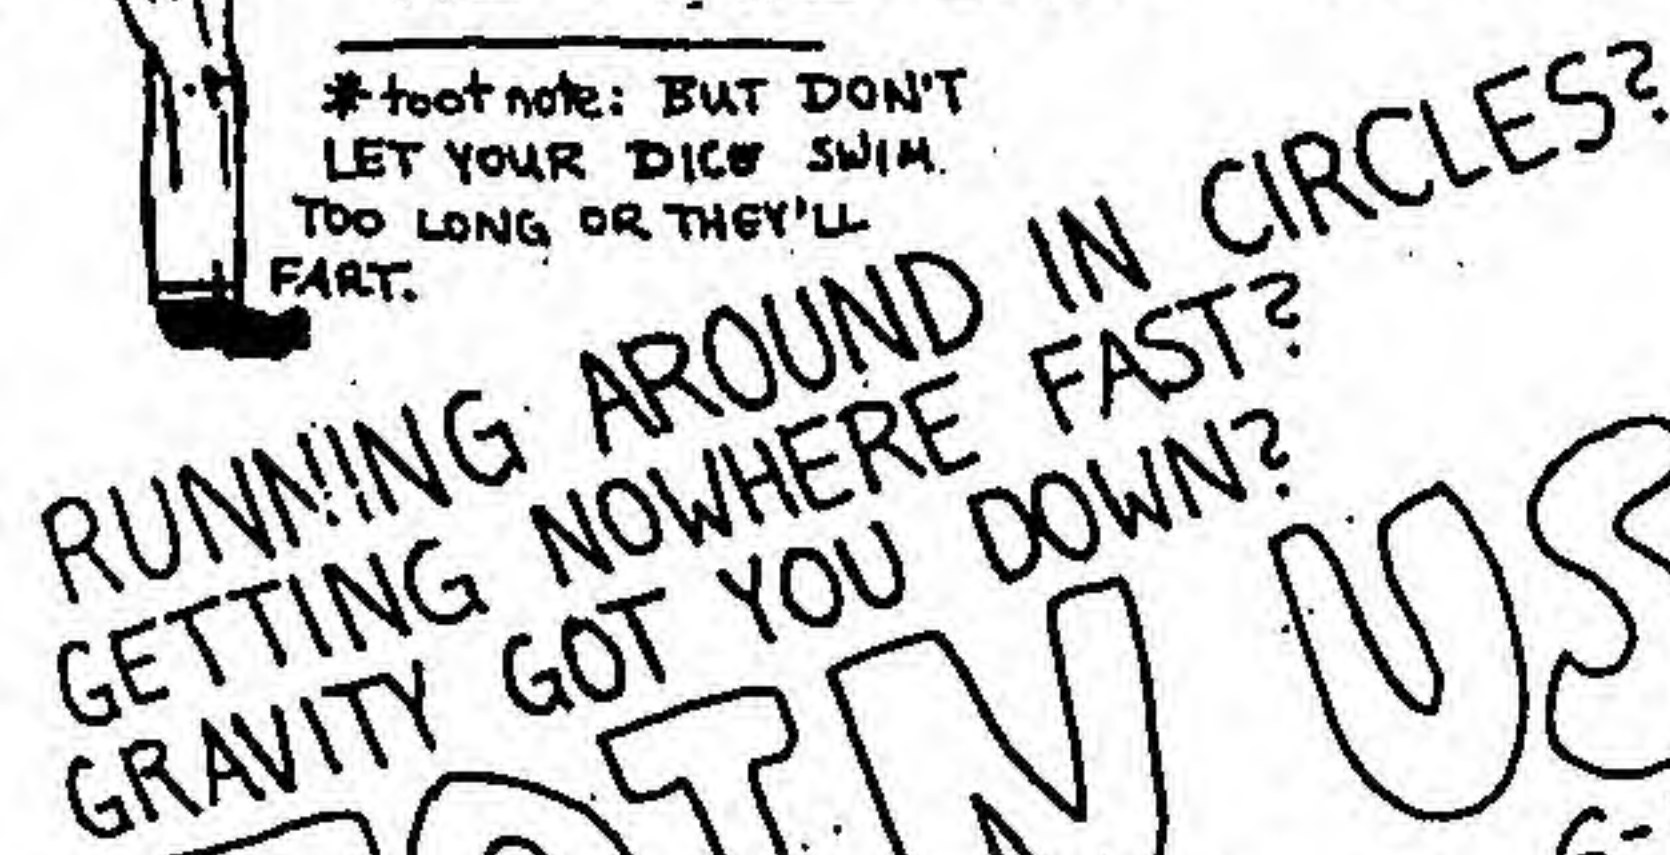 *footnote: BUT DON'T
LET YOUR DICE SWIM
TOO LONG OR THEY'LL
FART.
RUNNING AROUND IN CIRCLES?
GETTING NOWHERE FAST?
GRAVITY GOT YOU DOWN?
JOIN US